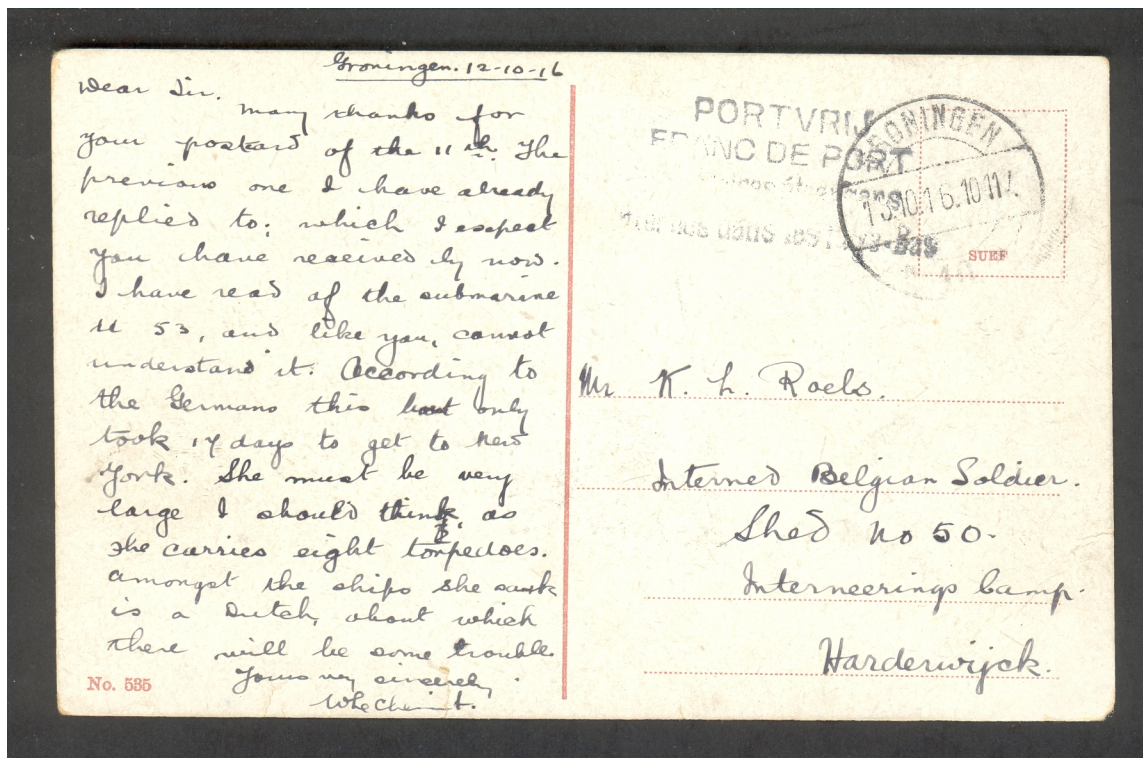 Groningen. 12-10-16
Dear Sir.
Many thanks for
your postcard of the 11th. The
previous one I have already
replied to; which I expect
you have received by now.
I have read of the submarine
U 53, and like you, cannot
understand it. According to
the Germans this boat only
took 17 days to get to New
York. She must be very
large I should think, as
she carries eight torpedoes.
Amongst the ships she sunk
is a Dutch, about which
there will be some trouble
Yours very sincerely
No. 535
PORTVRIJ
FRANC DE PORT
dans les Pays-Bas
GRONINGEN
SURF
Mr K. L. Roels.
Interned Belgian Soldier.
Shed No 50.
Interneerings Camp.
Harderwijck.